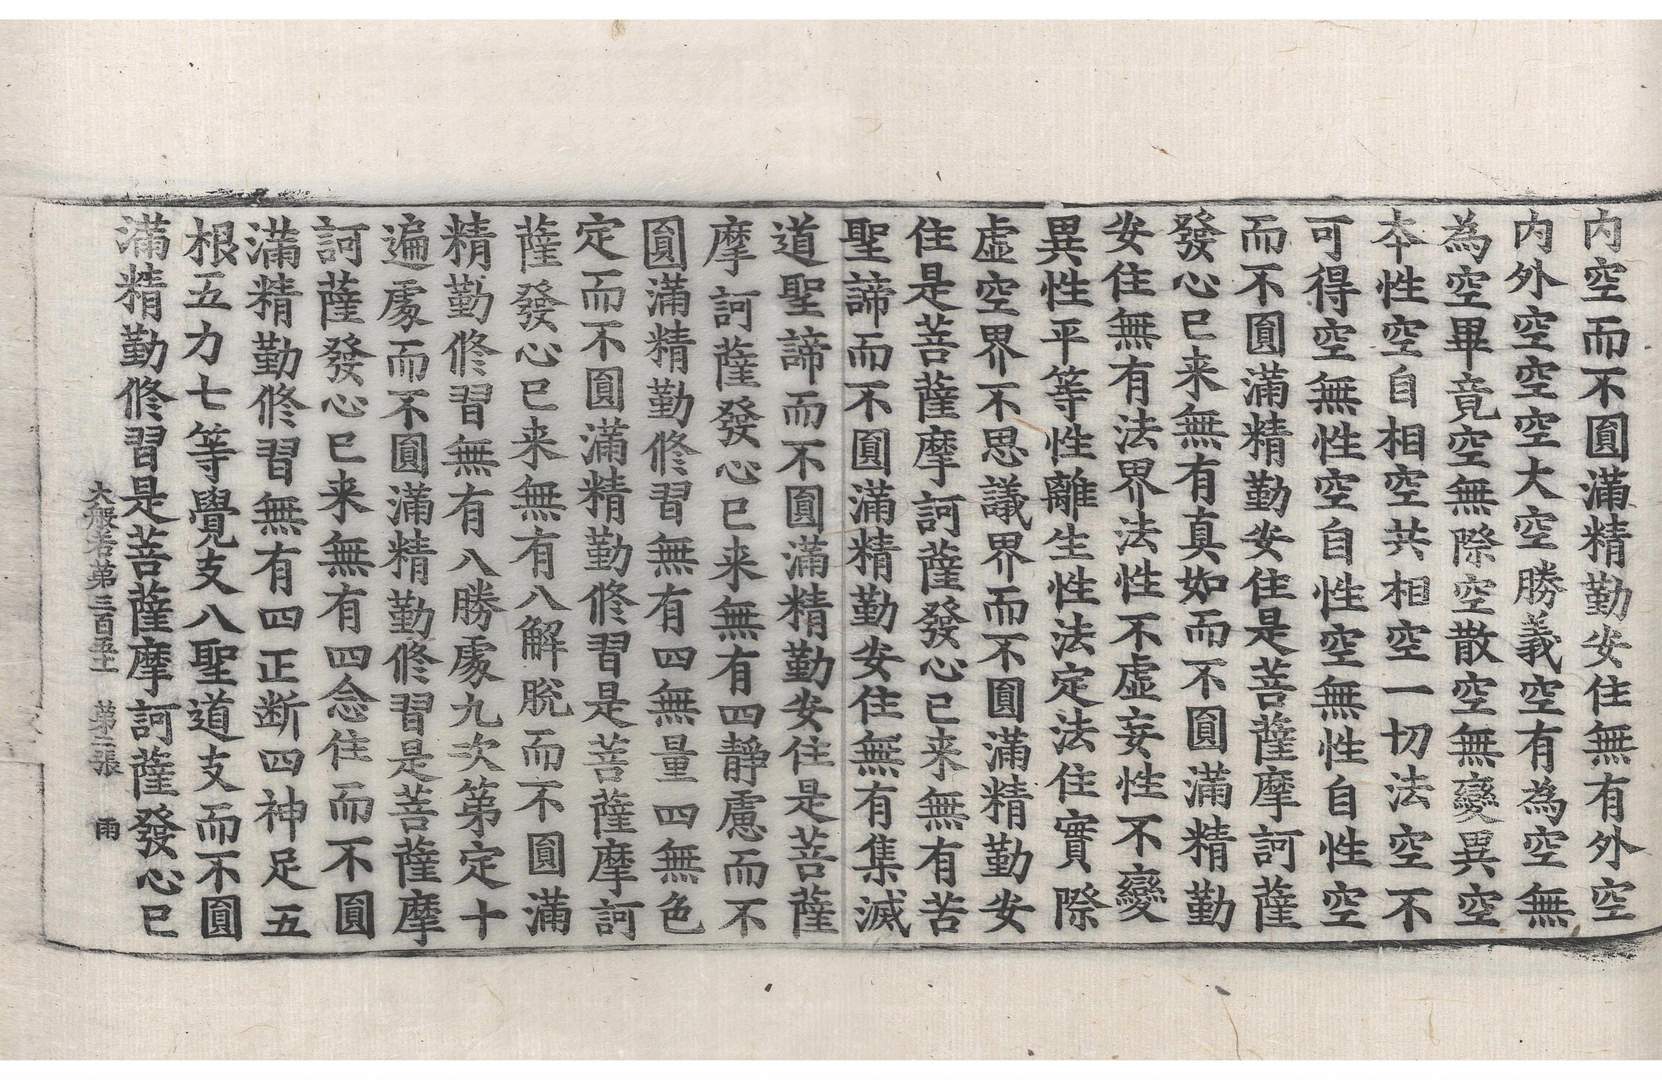 内空而不圓滿精勤安住無有外空
内外空空空大空勝義空有為空無
為空畢竟空無際空散空無變異空
本性空自相空共相空一切法空不
可得空無性空自性空無性自性空
而不圓滿精勤安住是菩薩摩訶薩
發心已来無有真如而不圓滿精勤
安住無有法界法性不虛妄性不變
異性平等性離生性法定法住實際
虛空界不思議界而不圓滿精勤安
住是菩薩摩訶薩發心已来無有苦
聖諦而不圓滿精勤安住無有集滅
道聖諦而不圓滿精勤安住是菩薩
摩訶薩發心已来無有四靜慮而不
圓滿精勤修習無有四無量四無色
定而不圓滿精勤修習是菩薩摩訶
薩發心已来無有八解脫而不圓滿
精勤修習無有八勝處九次第定十
遍處而不圓滿精勤修習是菩薩摩
訶薩發心已来無有四念住而不圓
滿精勤修習無有四正断四神足五
根五力七等覺支八聖道支而不圓
滿精勤修習是菩薩摩訶薩發心已
大般若第三百五十 第張 雨